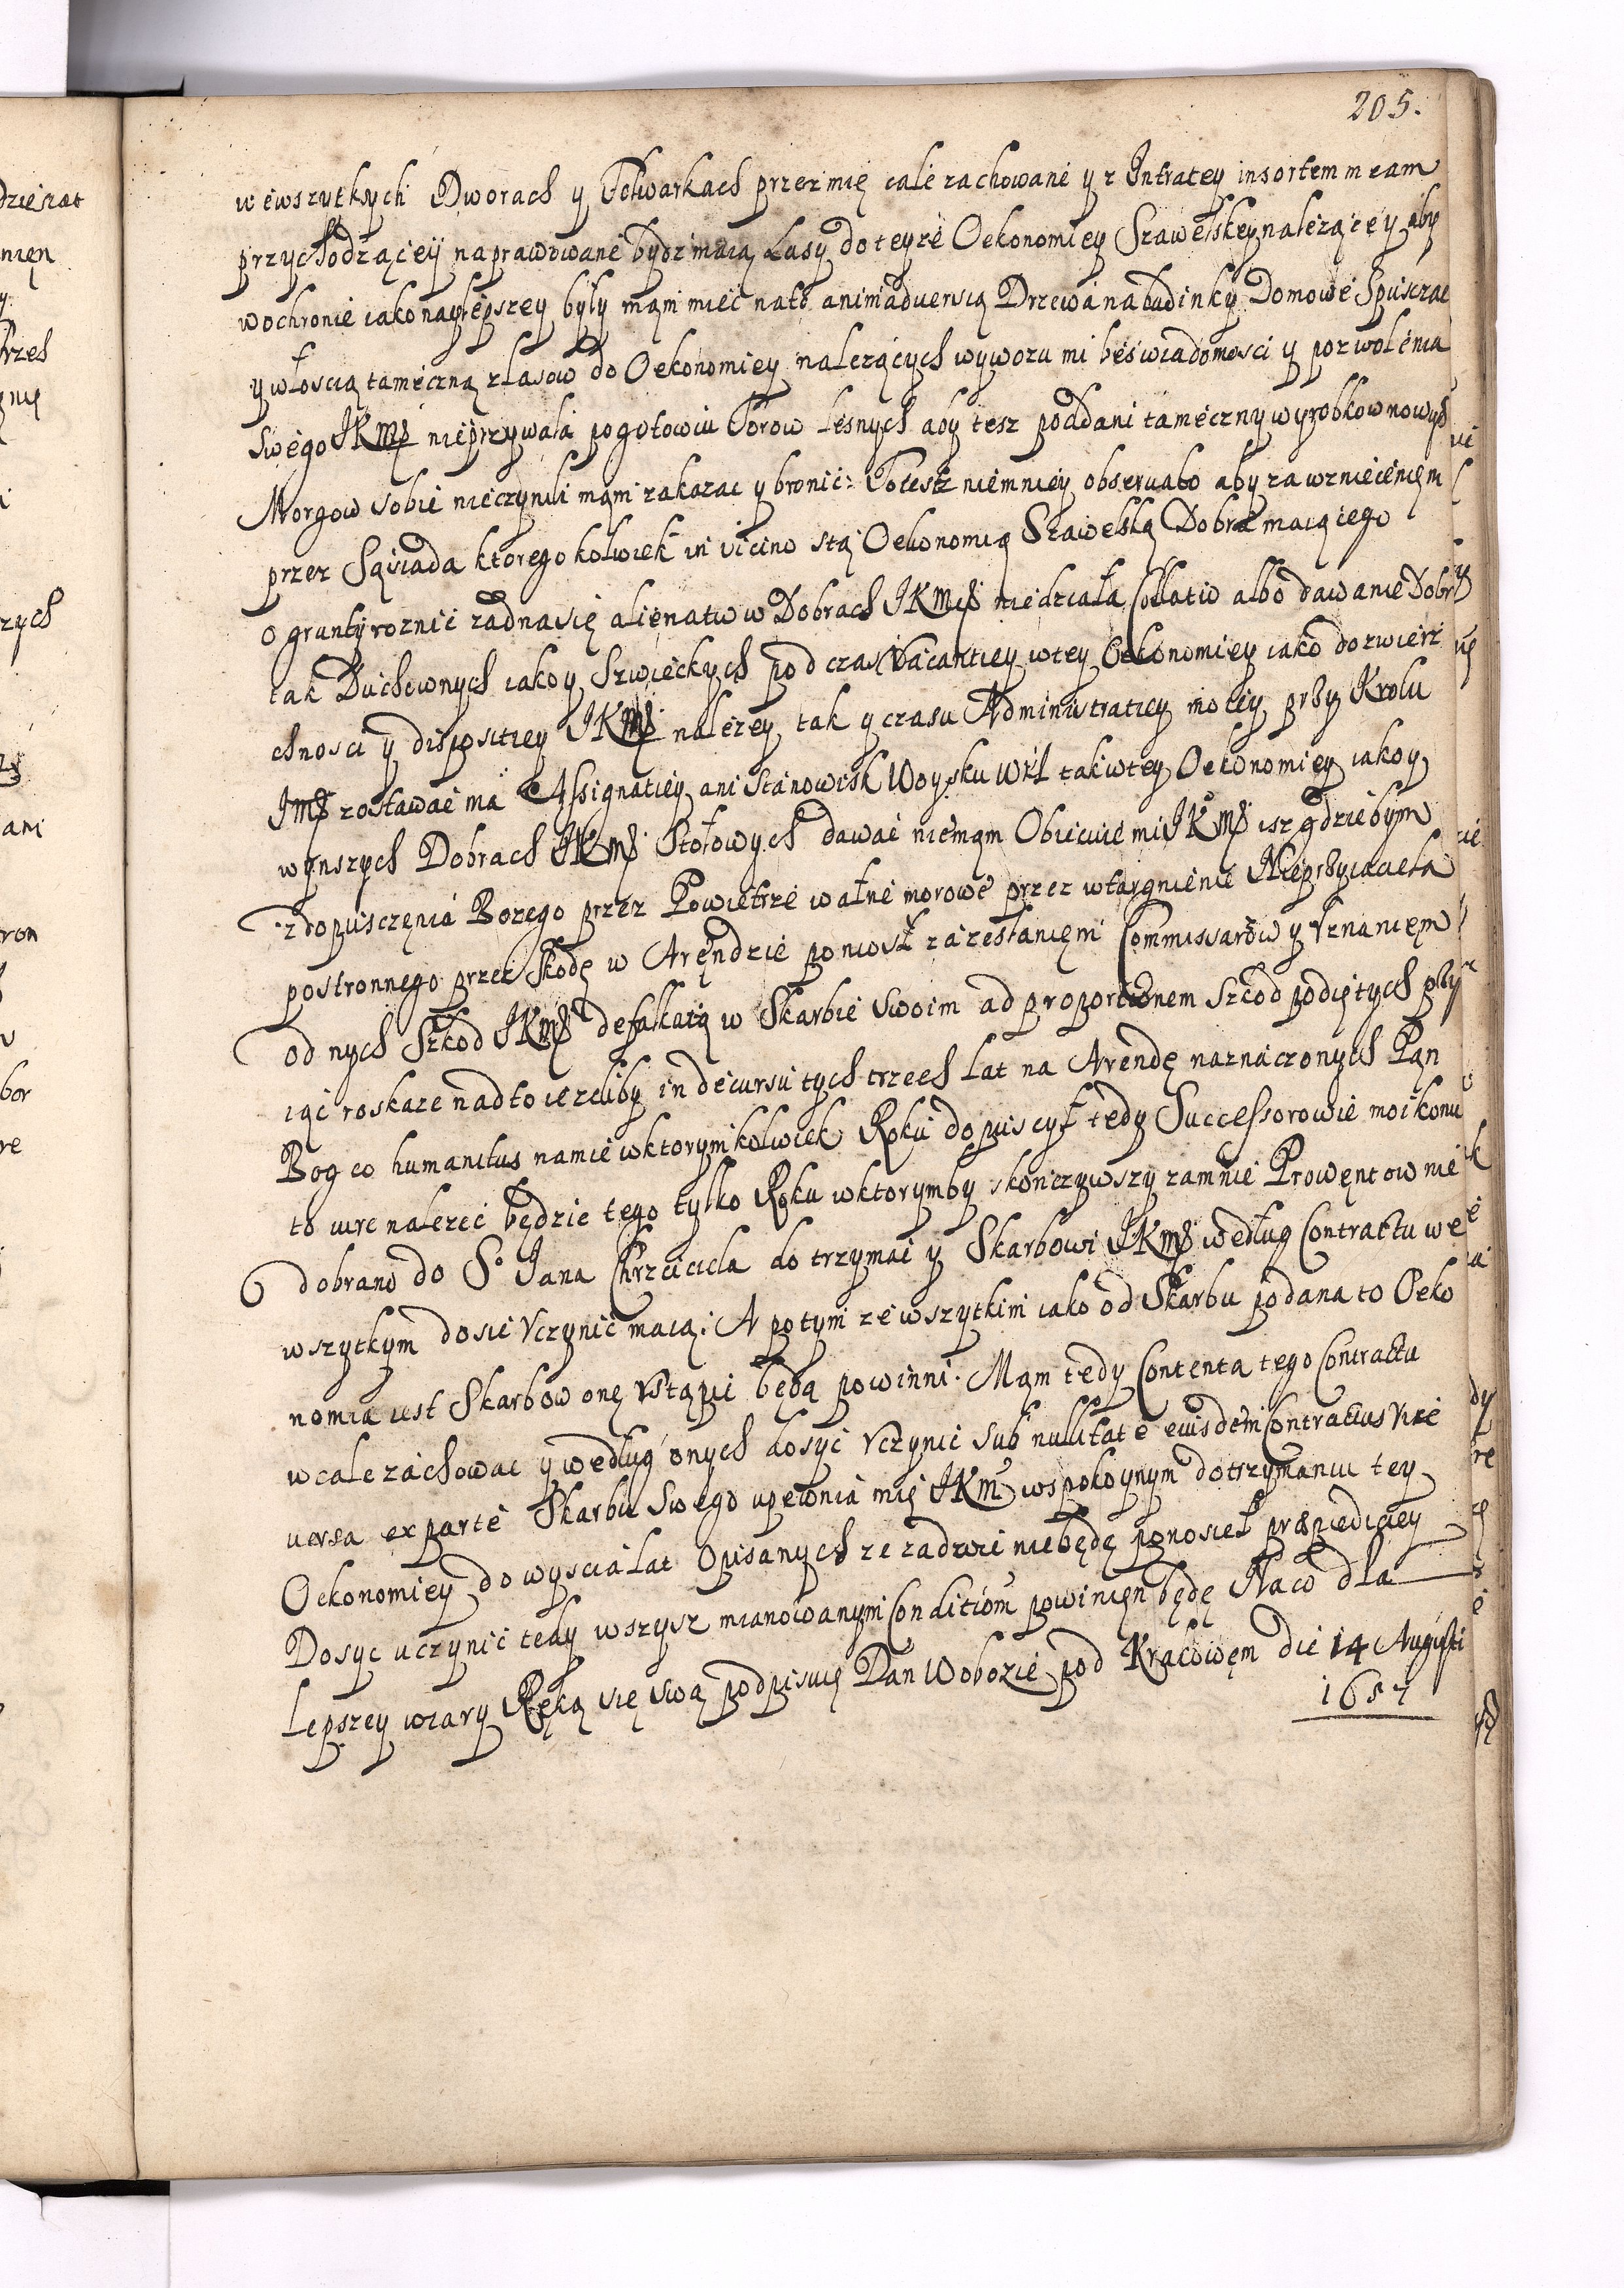 205.
wewszytkych Dworach y Folwarkach przez mię cale zachowane y z Intratey in sortem meam
przychodzącey naprawowane bydz maią Lasy do teyze Oekonomiey Szawelskey nalezącey aby
wochronie iako naylepszey były mąm miec nato animadversią Drzewa na budinky Domowe Spusczac
y włoscią tameczną zlasow do Oekonomiey nalezących wywozu mi bes wiadomosci y pozwolenia
swego JKMsc nieprzywala pogotowiu Borow lesnych aby tesz poddani tameczny wyrobkow nowych
Morgow sobie nieczynili mąm zakazac y bronic: To tesz niemniey observabo aby za wznieceniem
przez Sąsiada ktoregokolwiek in vicino stą Oekonomią Szawelską Dobra maiącego
o grunty roznic zadna się alienatio w Dobrach JKMsci niedziała Collatio albo dawanie Dobr
tak Duchownych iako y Szwieckych pod czas Vacantiey wtey Oekonomiey iako do zwierz
chnosci y dispositiey JKMsc nalezey tak y czasu Administratiey moiey przy Krolu
JMsc zostawac ma Assignatiey ani Stanowisk Woysku WXL tak wtey Oekonomiey iako y
wynszych Dobrach JKMsc Stołowych dawac niemąm Obiecuie mi JKMsc isz gdziebym
z dopusczęnia Bozego przez Powietrze walne morowe przez wtargnienie Nieprzyiaciela
postronnego przez Skodę w Aręndzie poniosł za zesłanięm Commissarzow y Vznanięm
od nych Szkod JKMsc defalkatą w Skarbie swoim ad proportionem szkod podiętych przy
iąc roskaze nadto iezeliby in decursu tych trzech Lat na Arendę naznaczonych Pąn
Bog co humanitus namie wktorymkolwiek Roku dopuscył tedy Successorowie moi komu
to iure nalezec będzie tego tylko Roku wktorymby skonczywszy zamnie Prowęntow nie
dobrano do So Jana Chrzciciela do trzymac y Skarbowi JKMsc według Contractu we
wszytkym dosic Vczynic maią: A potym ze wszytkim iako od Skarbu podana to Oeko
nomia iest Skarbow onę Vstąpic będą powinni. Mąm tedy Contenta tego Contractu
wcale zachowac y według onych dosyc Vczynic sub nullitate eiusdem Contractus Vice
versa ex parte Skarbu Swego upewnia mię JKM wspokoynym dotrzymaniu tey
Oekonomiey do wyscia lat Opisanych ze zadnei niebędę ponosieł præpediciey
Dosyc uczynic tedy wszysz mianowanym Conditiom powinięn będę Naco dla
Lepszey wiary Ręką się swą podpisuię Dan Wobozie pod Krąkowęm die 14 Augusti
1657